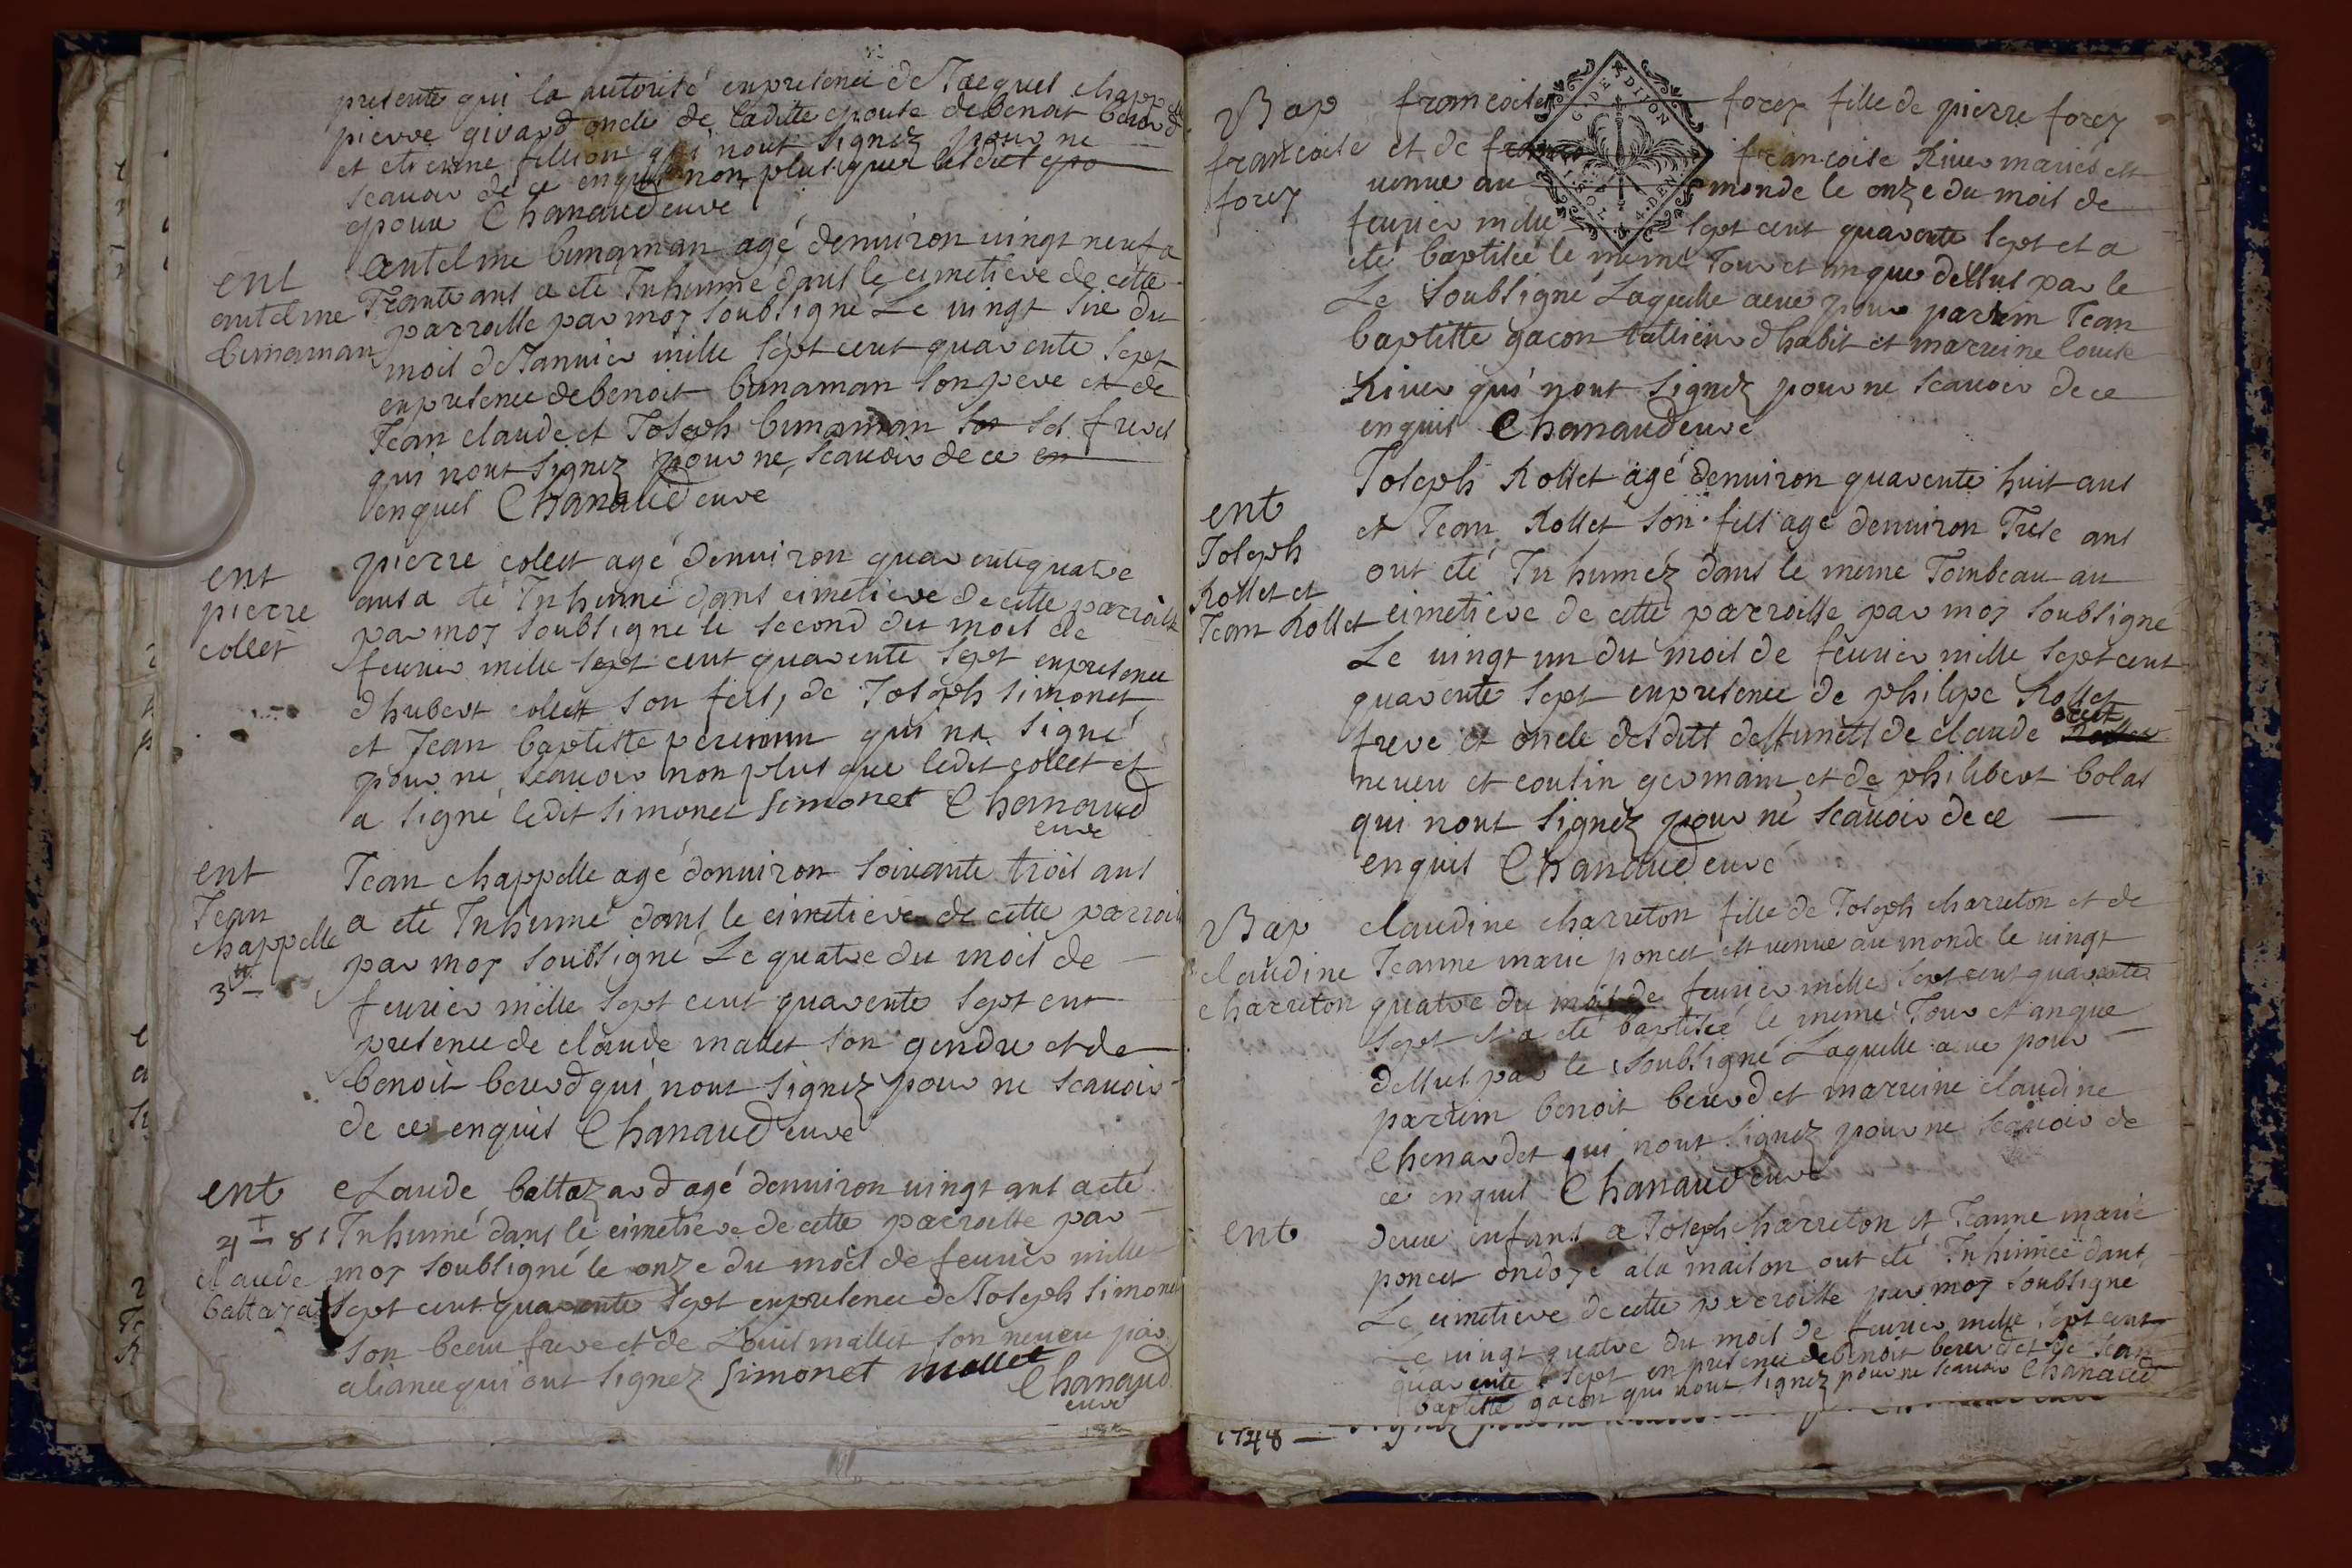 presente qui la autorisé enpresence de Jacques chapp
pierre givard oncle de laditte epouse de benoit beurd
et etienne fillion qui nont signez pour ne
scavoir de ce enquis non plus que lesdit epo
epoux Chanaud curé
ent
antelme
bunaman
antelme bunaman agé denuiron uingt neuf a
Trante ans a eté Inhumé dans le cimetiere de cette
parroisse par moy soubsigné Le uingt sixe du
mois de Januier mille sept cent quarente sept
enpresence de benoit bunaman son pere et de
Jean claude et Joseph bunaman son ses freres
qui nont signez pour ne scauoir de ce en
enquis Chanaud curé
ent
pierre
collet
pierre collet agé denuiron quarente quatre
ans a eté Inhumé dans cimetiere de cette parroisse
par moy soubsigné le second du mois de
feurier mille sept cent quarente sept enpresence
dhubert collet son fils, de Joseph simonet
et Jean baptiste perrin qui na signé
pour ne scauoir non plus que ledit collet et
a signé ledit simonet simonet Chanaud
curé
ent
Jean
chappelle
3#
Jean chappelle agé denuiron soixante trois ans
a eté Inhumé dans le cimetiere de cette parrois
par moy soubsigné Le quatre du mois de
feurier mille sept cent quarente sept ent
presence de claude mallet son gendre et de
benoit beurd qui nont signez pour ne scauoir
de ce enquis Chanaud curé
ent
4 — 8
claude
baltazar
cLaude baltazard agé denuiron uingt ans a eté
Inhumé dans le cimetiere de cette parroisse par
moy soubsigné le onze du mois de feurier mille
sept cent quarente sept enpresence de Joseph simonet
son beau frere et de Louis mallet son neueu par
aliance qui ont signez simonet mallet
Chanaud
curé
Bap
francoise
forey
G. DE DIJON
francoise forey fille de pierre forey
et de francoise Riuer mariés est
uenue au monde le onze du mois de
feurier mille sept cent quarente sept et a
eté baptisée le meme Jour et anque dessus par le
Le soubsigné Laquelle a eue pour parrein Jean
baptiste gacon tallieur dhabit et marreine louise
Riuer qui nont signez pour ne scauoir de ce
enquis Chanaud curé
ent
Joseph
Rollet et
Jean Rollet
Joseph Rollet agé denuiron quarente huit ans
et Jean Rollet son fils agé denuiron Trese ans
ont eté Inhumez dans le meme Tombeau au
cimetiere de cette parroisse par moy soubsigné
Le uingt un du mois de feurier mille sept cent
quarente sept enpresence de philipe Rollet
frere et oncle desdits deffunets de claude
neueu et cousin germain et de philibert bolas
qui nont signez pour ne scauoir de ce
enquis Chanaud curé
Bap
claudine
charreton
claudine charreton fille de Joseph charreton et de
Jeanne marie poncet est uenue au monde le uingt
quatre du mois de feurier mille sept cent quarente
sept et a eté baptisée le meme Jour et anque
dessus par le soubsigné Laquelle a ue pour
parrein benoit beurd et marreine claudine
Chenardet qui nont signez pour ne scauoir de
ce enquis Chanaud curé
ent
deux enfans a Joseph charreton et Jeanne marie
poncet ondoyé ala maison ont eté Inhumee dans
Le cimetiere de cette parroisse par moy soubsigné
Le uingt quatre du mois de feurier mille sept cent
quarente sept en presence de benoit beurd et de Jean
baptiste gacon qui nont signez pour ne scauoir Chanaud
1748